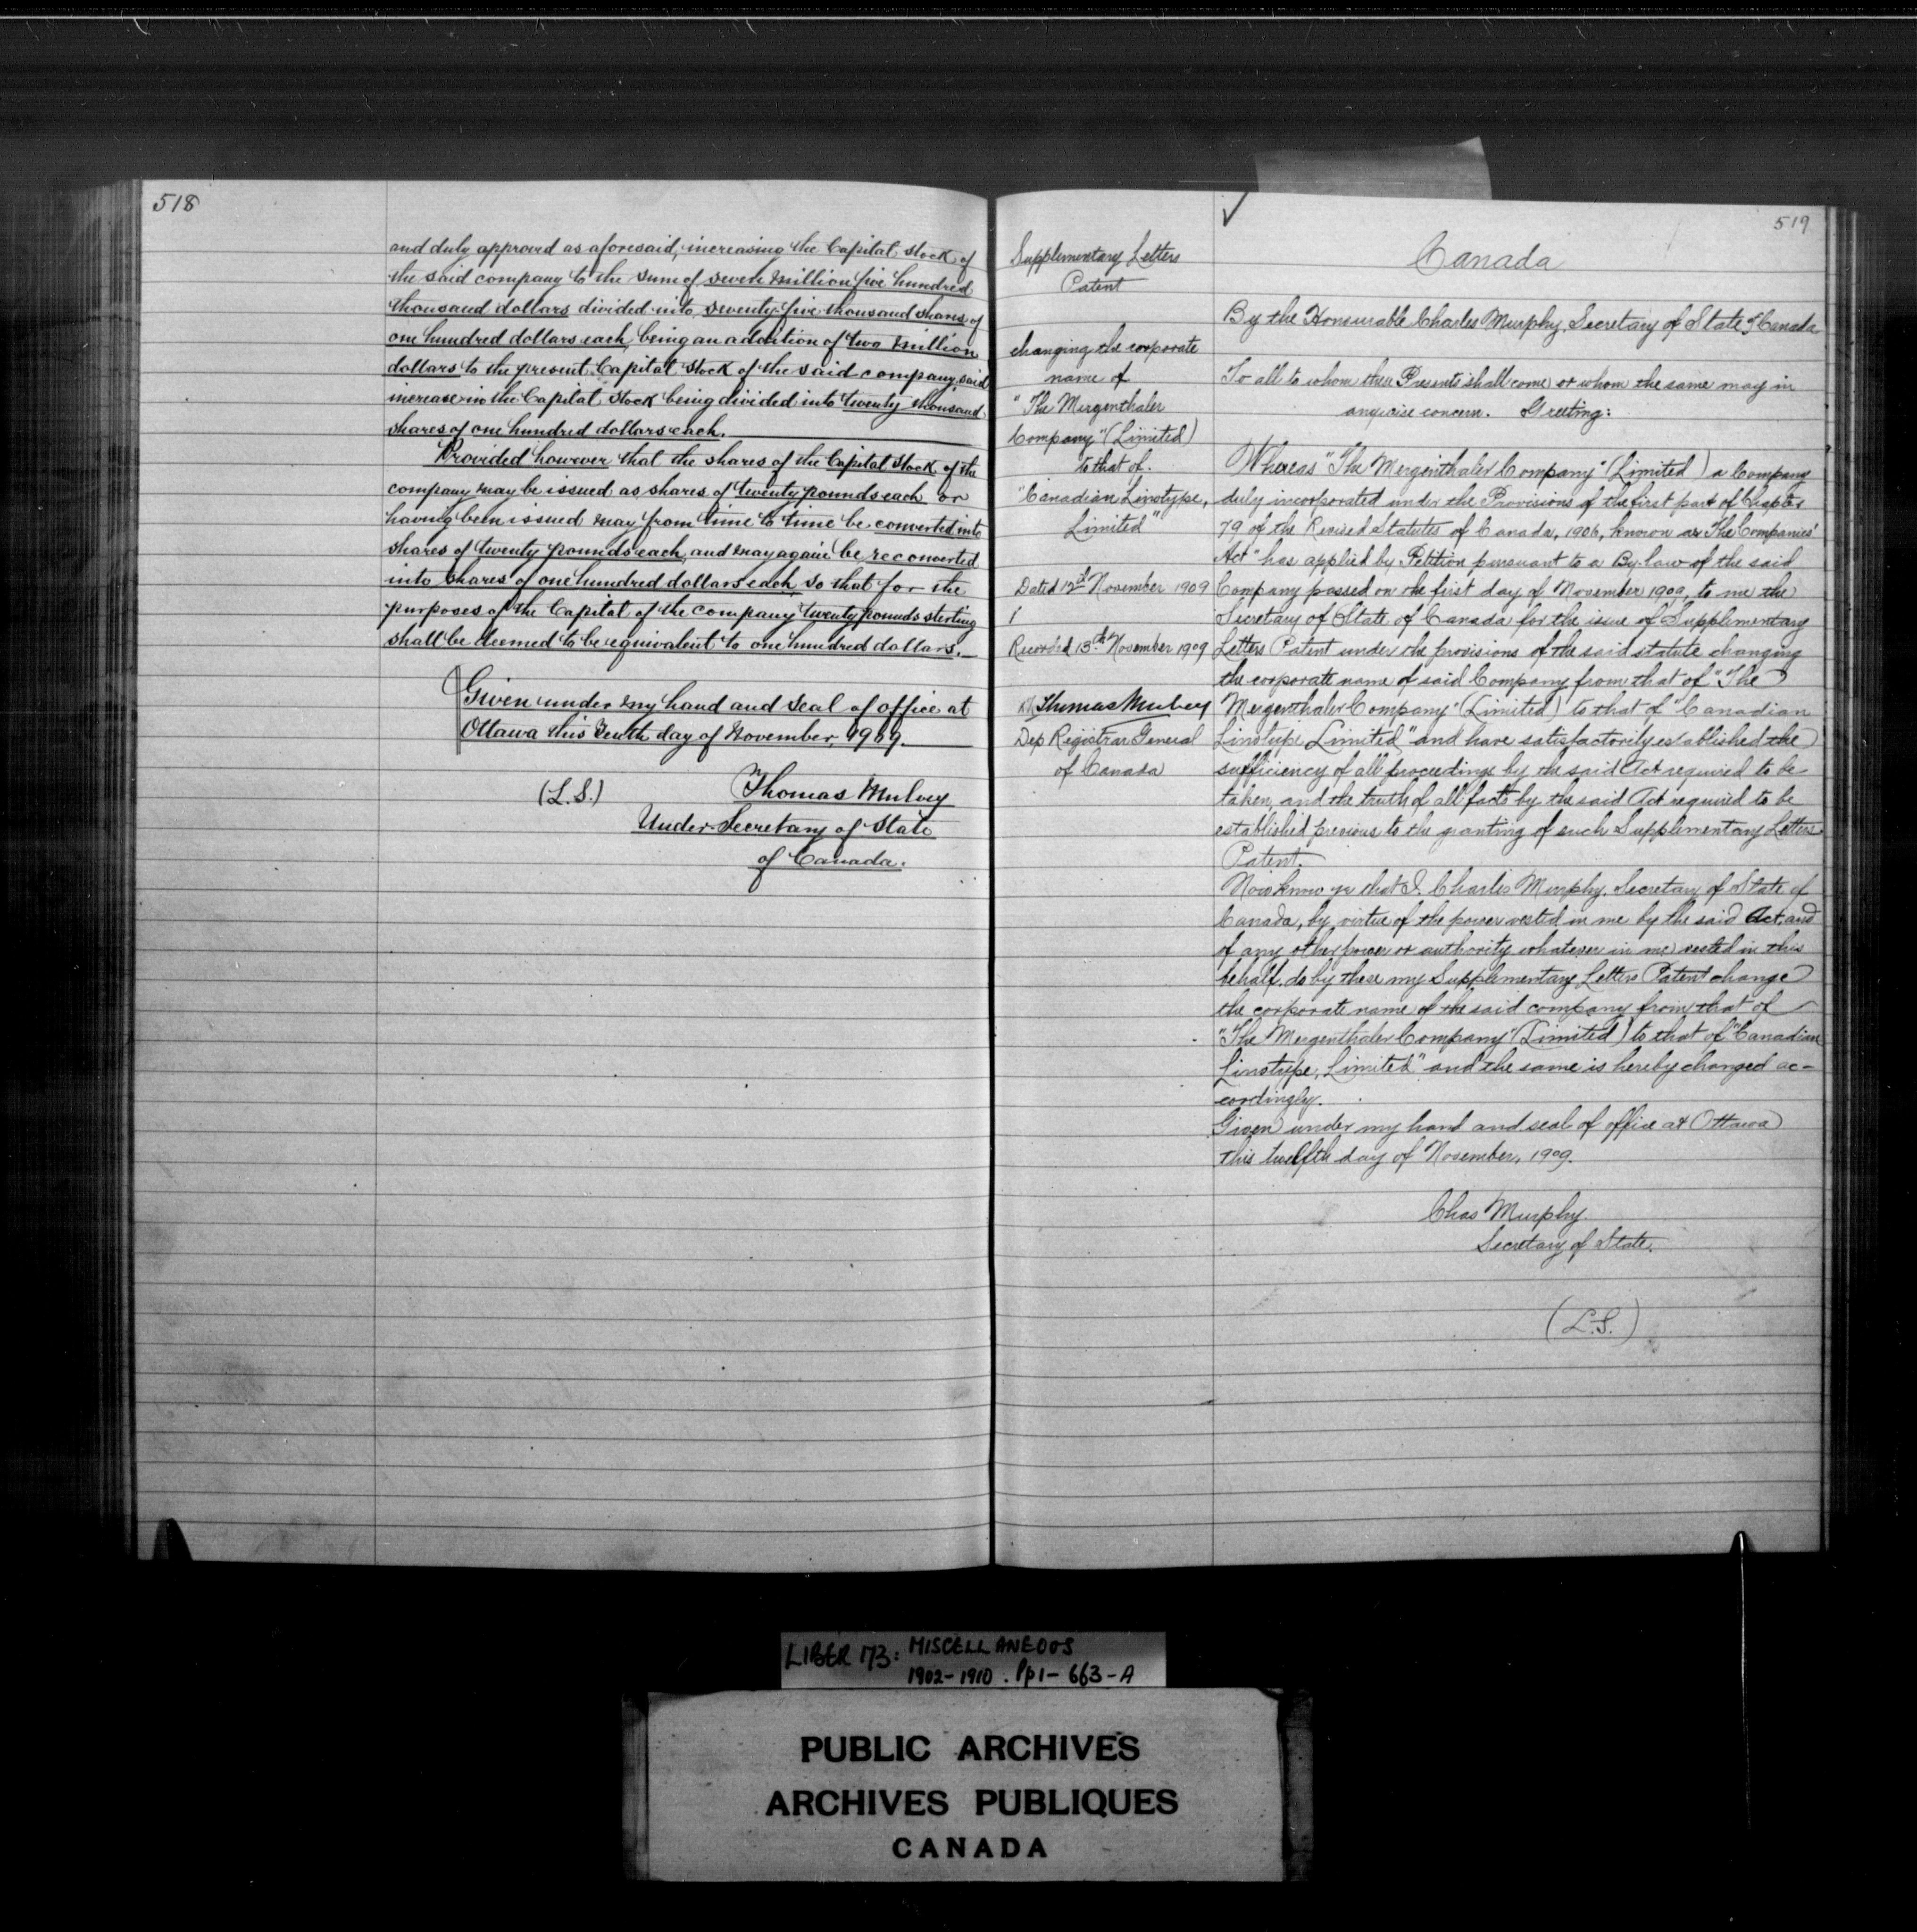 518
and duly approved as aforesaid, increasing the Capital Stock of
the said company to the sum of seven million five hundred
thousand dollars divided into seventy-five thousand shares of
one hundred dollars each, being an addition of two million
dollars to the present Capital Stock of the said company, said
increase in the Capital Stock being divided into twenty thousand
shares of one hundred dollars each.
Provided however that the shares of the Capital Stock of the
company may be issued as shares of twenty pounds each or
having been issued may from time to time be converted into
shares of twenty pounds each, and may again be reconverted
into shares of one hundred dollars each, so that for the
purposes of the Capital of the company twenty pounds sterling
shall be deemed to be equivalent to one hundred dollars.
Given under my hand and seal of office at
Ottawa this Tenth day of November, 1909.
(L.S.) Thomas Mulvey
Under-Secretary of State
of Canada.
519
Supplementary Letters
Patent
changing the corporate
name of
"The Mergenthaler
Company" (Limited)
to that of.
"Canadian Linotype,
Limited"
Dated 12th November 1909
Recorded 13th November 1909
Thomas Mulvey
Dep Registrar General
of Canada
Canada
By the Honourable Charles Murphy, Secretary of State of Canada
To all to whom these Presents shall come or whom the same may in
anywise concern. Greeting:
Whereas "The Mergenthaler Company" (Limited) a Company
duly incorporated under the Provisions of the first part of Chapter
79 of the Revised Statutes of Canada, 1906, known as "The Companies'
Act" has applied by Petition pursuant to a By-law of the said
Company passed on the first day of November 1909, to me the
Secretary of State of Canada for the issue of Supplementary
Letters Patent under the provisions of the said statute changing
the corporate name of said Company from that of "The
Mergenthaler Company" (Limited) to that of "Canadian
Linotype Limited" and have satisfactorily established the
sufficiency of all proceedings by the said Act required to be
taken, and the truth of all facts by the said Act required to be
established previous to the granting of such Supplementary Letters
Patent.
Now know ye that I, Charles Murphy, Secretary of State of
Canada, by virtue of the power vested in me by the said Act, and
of any other power or authority whatever in me vested in this
behalf, do by these my Supplementary Letters Patent change
the corporate name of the said company from that of
"The Mergenthaler Company" (Limited) to that of "Canadian
Linotype, Limited" and the same is hereby changed ac-
cordingly.
Given under my hand and seal of office at Ottawa
this twelfth day of November, 1909.
Chas Murphy
Secretary of State.
(L.S.)
LIBER 173: MISCELLANEOUS
1902-1910. Pp 1-663-A
PUBLIC ARCHIVES
ARCHIVES PUBLIQUES
CANADA